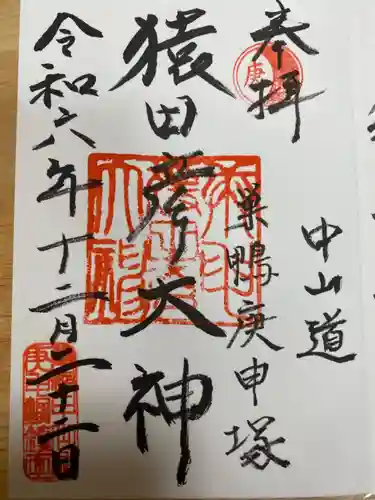 奉拝
中山道
巣鴨庚申塚
猿田彦大神
令和六年十二月二十二日